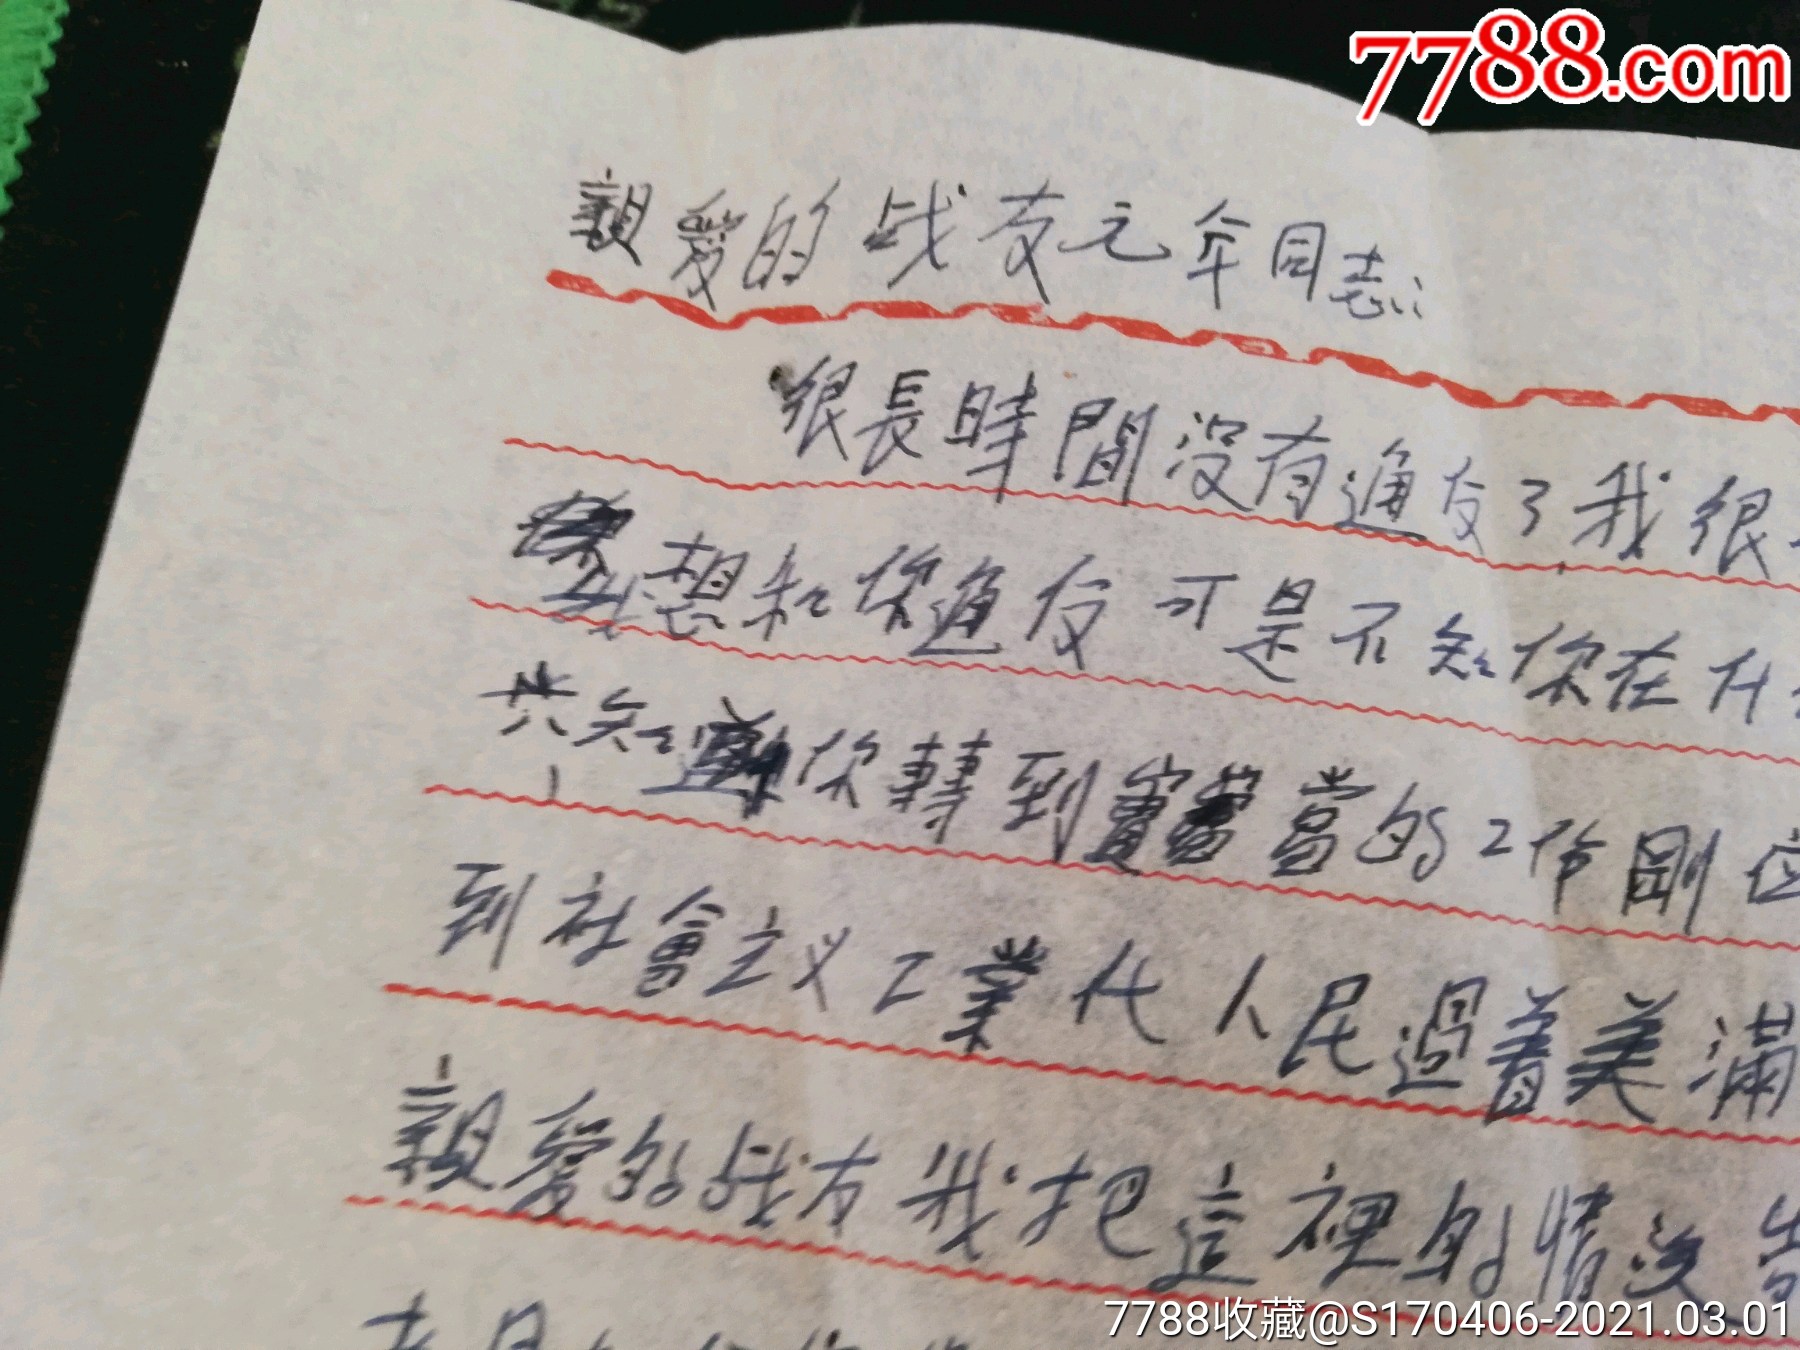 7788.com
親爱的战友元年同志:
很長時間没有通友了我很
我想和你通友可是不知你在什
共知道你轉到當的工作剛
到社會主义工業代人民過着美满
親爱的战友我把這裡的情况告
7788收藏@S170406-2021.03.01